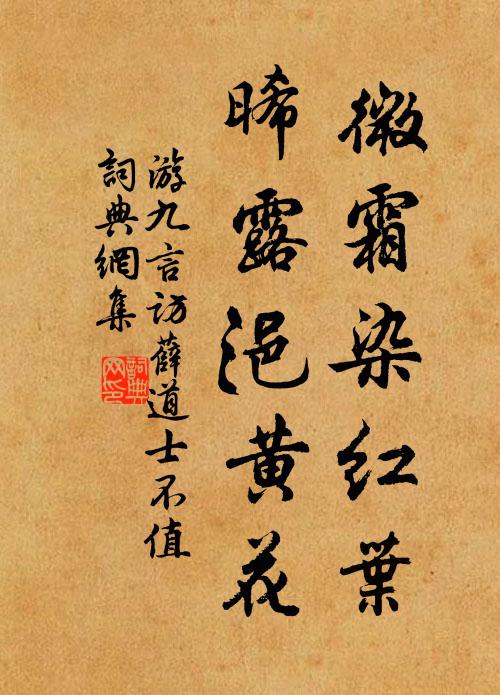 微霜染红葉
晞露浥黄花
游九言访薛道士不值
詞典網集
詞典
网印